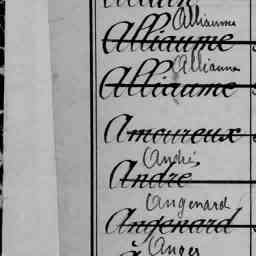 Alliaume
Alliaume
Alliaume
Alliaume
Amoureux
André
André
Angenard
Angenard
Anger